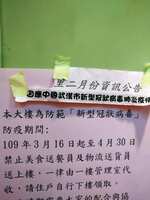 里二月份資訊公告
因應中國武漢市新型冠狀病毒肺炎疫情
本大樓為防範「新型冠狀病毒」
防疫期間
109年3月16日起至4月30日
禁止美食送餐員及物流送貨員
送上樓，一律由一樓管理室代
收，請住戶自行下樓領取。